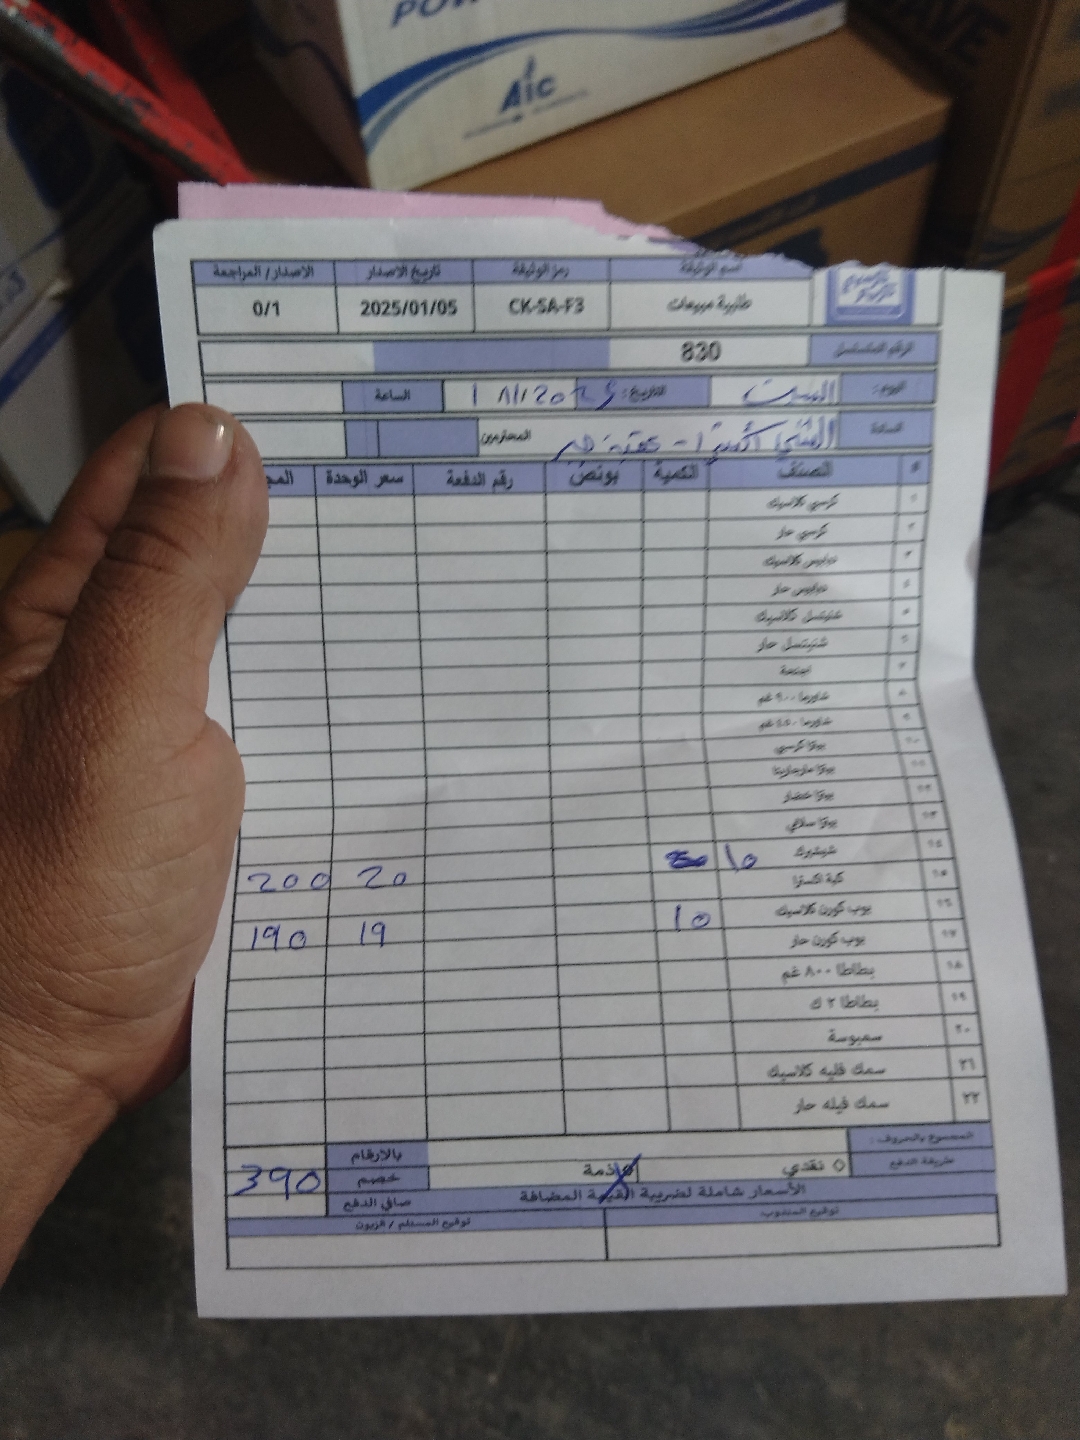 POW
Aic
اسم الوثيقة رمز الوثيقة تاريخ الاصدار الاصدار/ المراجعة
طلبية مبيعات CK-SA-F3 2025/01/05 0/1
الرقم المتسلسل 830
اليوم: السبت التاريخ: الساعة
السادة المحترمين
# الصنف الكمية بونص رقم الدفعة سعر الوحدة المج
١ كرسبي كلاسيك
٢ كرسبي حار
٣ دبابيس كلاسيك
٤ دبابيس حار
٥ شنيتسل كلاسيك
٦ شنيتسل حار
٧
٨ شاورما ٩٠٠ غم
٩ شاورما ٤٥٠ غم
١٠
١١ بيتزا مارجريتا
١٢ بيتزا خضار
١٣ بيتزا سلامي
١٤ شيشبرك 10 20 200
١٥ كبة اكسترا
١٦ بوب كورن كلاسيك 10 19 190
١٧ بوب كورن حار
١٨ بطاطا ٨٠٠ غم
١٩ بطاطا ٢ ك
٢٠ سمبوسة
٢١ سمك فليه كلاسيك
٢٢ سمك فيله حار
المجموع بالحروف: بالارقام
طريقة الدفع ◊ نقدي ذمة خصم 390
الأسعار شاملة لضريبة القيمة المضافة صافي الدفع
توقيع المندوب توقيع المستلم / الزبون